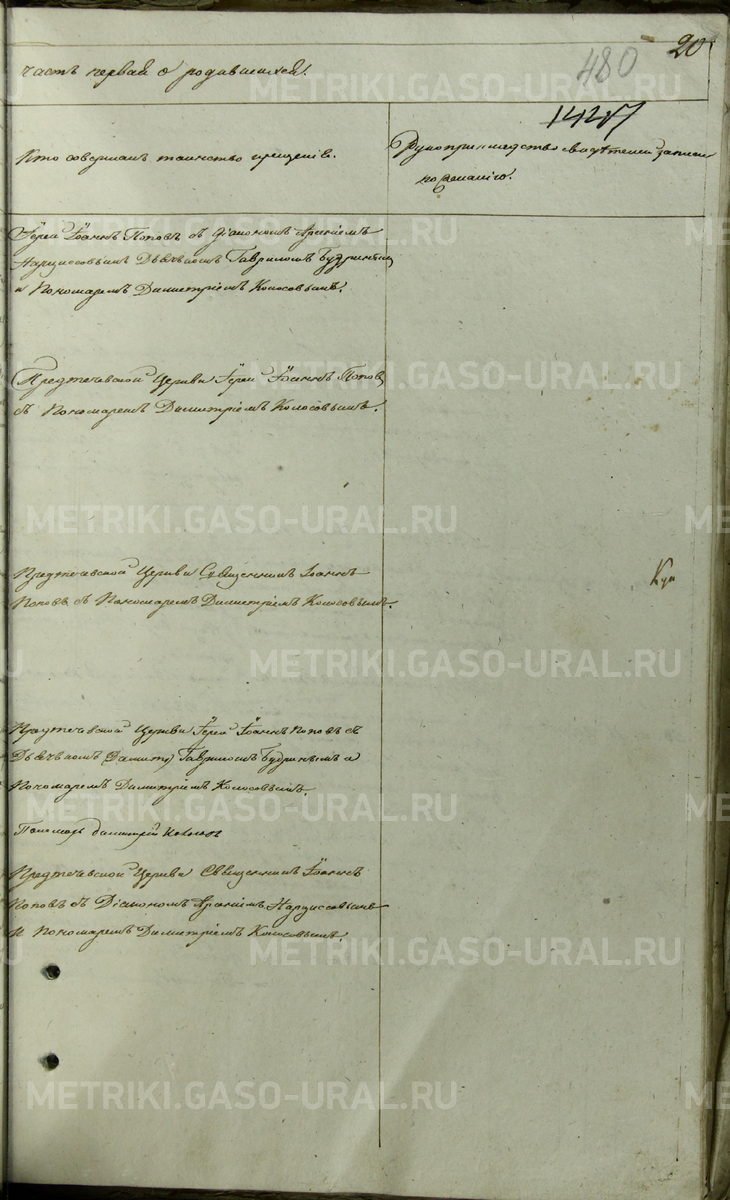 20
480
часть первая о родившихся.
1427
Кто совершалъ таинство крещенія.
Рукоприкладство свидѣтелей записи
по желанію.
Іерей Іоаннъ Поповъ съ Діакономъ
Нарциссовымъ Дьячкомъ Гавриломъ
и Пономаремъ Димитріемъ Колосовымъ.
Предтечевской Церкви Іерей Іоаннъ Поповъ
съ Пономаремъ Димитріемъ Колосовымъ.
Предтечевской Церкви Священникъ Іоаннъ
Поповъ съ Пономаремъ Димитріемъ Колосовымъ.
Предтечевской Церкви Іерей Іоаннъ Поповъ съ
Дьячкомъ Гавриломъ и
Пономаремъ Димитріемъ Колосовымъ.
Пономарь Димитрій Колосовъ
Предтечевской Церкви Священникъ Іоаннъ
Поповъ съ Діакономъ Нарциссовымъ
и Пономаремъ Димитріемъ Колосовымъ.
METRIKI.GASO-URAL.RU